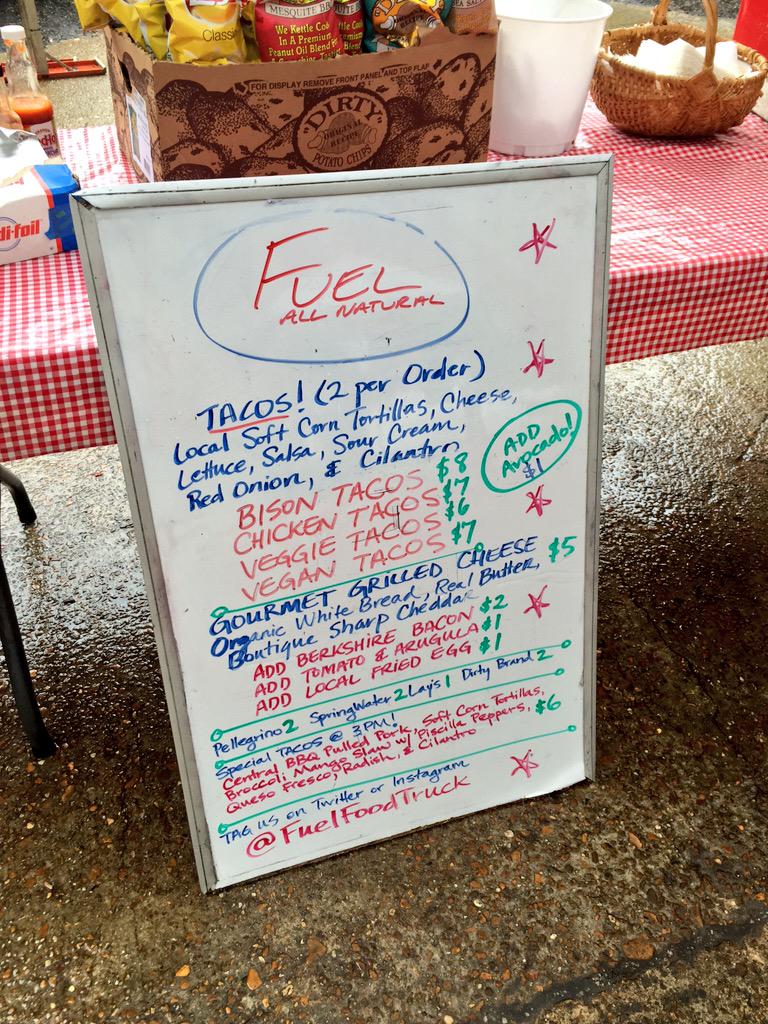 Classic
MESQUITE BB
We Kettle Coo
In A Premium
Peanut Oil Blend
FOR DISPLAY REMOVE FRONT PANEL AND TOP FLAP
"DIRTY"
ORIGINAL RECIPE
POTATO CHIPS
di-foil
FUEL
ALL NATURAL
TACOS! (2 per Order)
Local Soft Corn Tortillas, Cheese,
Lettuce, Salsa, Sour Cream,
Red Onion, & Cilantro
ADD
Avocado!
$1
BISON TACOS $8
CHICKEN TACOS $7
VEGGIE TACOS $6
VEGAN TACOS $7
GOURMET GRILLED CHEESE $5
Organic White Bread, Real Butter,
Boutique Sharp Cheddar
ADD BERKSHIRE BACON $2
ADD TOMATO & ARUGULA $1
ADD LOCAL FRIED EGG $1
Pellegrino 2 Spring Water 2 Lays 1 Dirty Brand 2
Special TACOS @ 3PM!
Central BBQ Pulled Pork, Soft Corn Tortillas,
Broccoli Mango Slaw w/ Piscilla Peppers, $6
Queso Fresco, Radish, & Cilantro
TAG us on Twitter or Instagram
@FuelFoodTruck